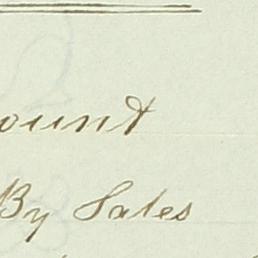 ount
By Sales